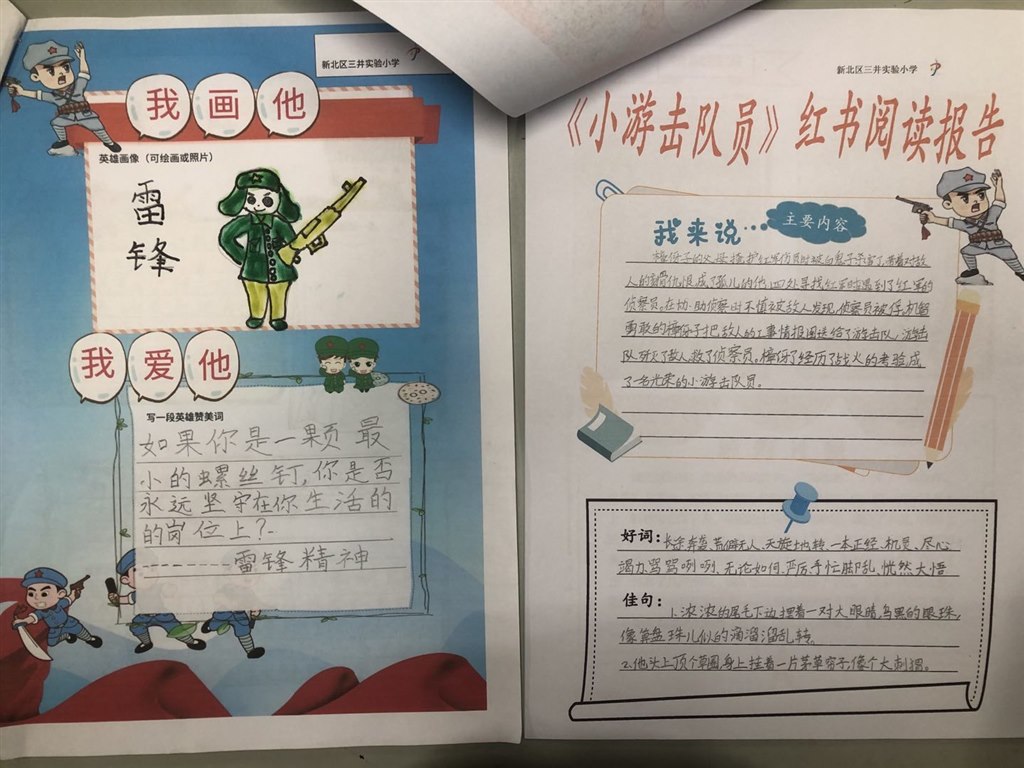 新北区三井实验小学
我画他
英雄画像（可绘画或照片）
雷
锋
我爱他
写一段英雄赞美词
如果你是一颗最
小的螺丝钉，你是否
永远坚守在你生活的
的岗位上？
雷锋精神
新北区三井实验小学
《小游击队员》红书阅读报告
我来说…
主要内容
樟伢子的父母掩护红军伤员时被白鬼子杀害了，带着对敌
人的仇恨成了孤儿的他，四处寻找红军时遇到了红军的
侦察员。在协助侦察时不慎被敌人发现，侦察员被俘，机智
勇敢的樟伢子把敌人的工事情报图送给了游击队，游击
队歼灭了敌人救了侦察员。樟伢子经历了战火的考验成
了一名光荣的小游击队员。
好词：长途奔波、荒僻无人、天旋地转、一本正经、机灵、尽心
竭力、骂骂咧咧、无论如何、严厉、手忙脚乱、恍然大悟
佳句：1.浓浓的眉毛下边摆着一对大眼睛，乌黑的眼珠，
像算盘珠儿似的滴溜溜乱转。
2.他头上顶个草圈，身上挂着一片茅草帘子，像个大刺猬。